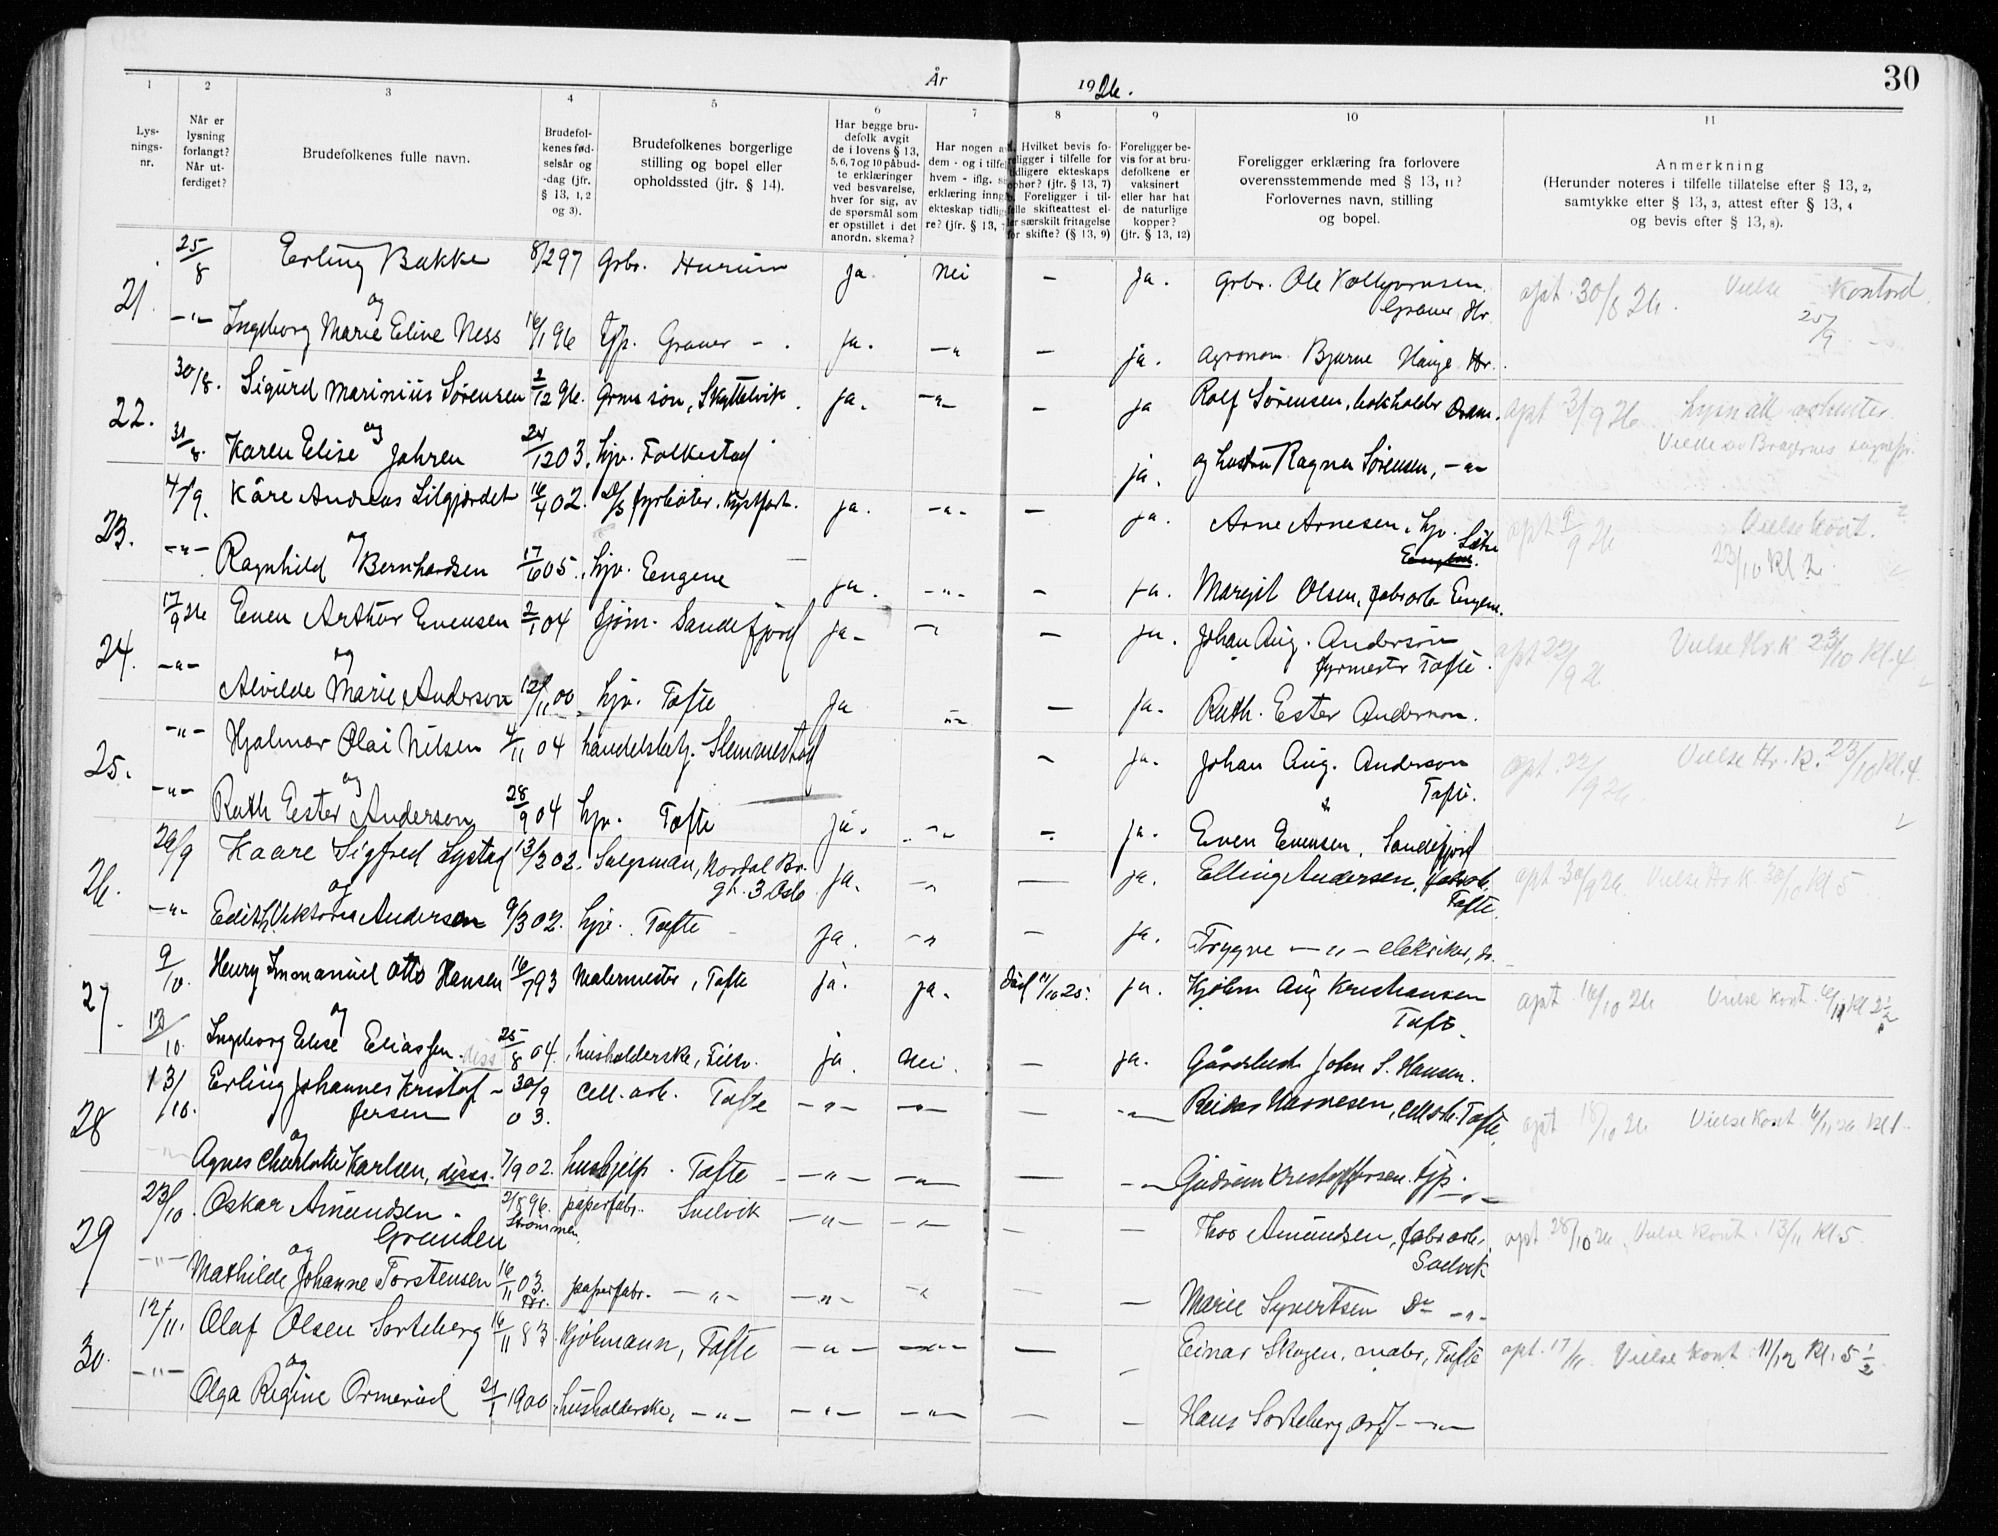 År 1926.
30
1 2 3 4 5 6 7 8 9 10 11
Lysningsnr.
Når er lysning forlangt? Når utferdiget?
Brudefolkenes fulle navn.
Brudefolkenes fødselsår og -dag (jfr. § 13, 1, 2 og 3).
Brudefolkenes borgerlige stilling og bopel eller opholdssted (jfr. § 14).
Har begge brudefolk avgit de i lovens § 13, 5, 6, 7 og 10 påbudte erklæringer ved besvarelse, hver for sig, av de spørsmål som er opstillet i det anordn. skema?
Har nogen av dem - og i tilfelle hvem - iflg.
erklæring inngåt ekteskap tidligere? (jfr. § 13, 7
Hvilket bevis foreligger i tilfelle for tidligere ekteskaps ophør? (jfr. § 13, 7) Foreligger i tilfelle skifteattest eller særskilt fritagelse for skifte? (§ 13, 9)
Foreligger bevis for at brudefolkene er vaksinert eller har hat de naturlige kopper? (jfr. § 13, 12)
Foreligger erklæring fra forlovere overensstemmende med § 13, 11? Forlovernes navn, stilling og bopel.
Anmerkning (Herunder noteres i tilfelle tillatelse efter § 13, 2, samtykke efter § 13, 3, attest efter § 13, 4 og bevis efter § 13, 8).
21. 25/8 Erling Bakke 8/2 97 Grbr. Hurum ja. Nei - ja. Grbr. Ole Kolbjørnsen Graner Hr. opt. 30/8 26. Vielse Kontord 25/9
og
-"- Ingeborg Marie Eline Ness 16/1 96 tjp. Graner - . ja. -"- - ja. Agronom Bjarne Hauge Hr.
22. 30/8. Sigurd Marinius Sørensen 2/12 96. Grms søn, Skyttelvik. ja. -"- - ja Rolf Sørensen, bokholder Dram. opt 3/9 26
og
31/8. Karen Elise Jahren 24/12 03. hjv. Folkestad ja. og hustru Ragna Sørensen, -"- Vielse av Bragernes sognepr.
23. 4/9. Kåre Andreas Lilgjordet 16/4 02. D/S fyrbøter. Kystfart. ja. -"- - ja. Arne Arnesen, hjv. Sætre opt 9/9 26 Vielse Kont. 23/10 Kl 2.
og
-"- Ragnhild Bernhardsen 17/6 05. hjv. Engene ja. -"- - ja. Margit Olsen, fabrarb Engen.
24. 17/9 26 Even Arthur Evensen 2/1 04 Gjøm. Sandefjord ja - -"- - ja. Johan Aug. Anderson fyrmester Tofte. opt 22/9 26 Vielse Hr. K 23/10 Kl. 4
og
-"- Alvilde Marie Anderson 12/11 00 hjv. Tofte ja -"- - ja. Ruth. Ester Anderson.
25. -"- Hjalmar Olai Nilsen 4/11 04 handelsbetj. Slemmestad - ja. Johan Aug. Anderson Tofte. opt. 22/9 26 Vielse Hr. K. 23/10 Kl. 4.
og
-"- Ruth Ester Anderson 28/9 04 hjv. Tofte ja. -"- - ja. Even Evensen, Sandefjord
26. 29/9 Kaare Sigfred Lystad 13/2 02. Salgsman, gt. 3 Oslo ja. -"- — ja. Elling Andersen, fabrarb. Tofte. opt 30/9 26. Vielse Hr K 30/10 Kl 5
og
-"- Edith Viktoria Andersen 9/3 02. hjv. Tofte - ja. -"- - ja. Trygve -"- elektriker, do.
27. 9/10. Henry Immanuel Otto Hansen 16/7 93 Malermester, Tofte ja. ja. ja. Aug Kristiansen Tofte. opt. 16/10 26 Vielse Kont. Kl 2 1/2
og
12/10. Ingeborg Elise Eliassen. diss 25/8 04. husholderske, ja. Nei. - ja. John S. Hansen.
28 13/10. Erling Johannes Kristoffersen 30/9 03. cell. arb. Tofte -"- -"- — -"- Reidar Hansen, cellarb. Tofte. opt 18/10 26 Vielse Kont 6/11 26 Kl 1.
og
Agnes Charlotte Karlsen, diss. 7/9 02. hushjelp. Tofte -"- -"- — -"- Gudrun Kristoffersen. tjp. -"-
29 23/10 Oskar Amundsen Grunden 2/8 96. Strømmen. papirfabr. Svelvik -"- -"- - - Thor Amundsen, fabrarb. Svelvik opt 28/10 26. Vielse Kont. 13/11 Kl. 5.
og
-"- Mathilde Johanne Torstensen 16/11 03. Hr. papirfabr. -"- -"- -"- - - Marie Syvertsen Do -"-
30. 12/11. Olaf Olsen Sorteberg 16/11 83. Kjølmann, Tofte -"- -"- — - Einar Skogen, maler, Tofte opt. 17/11 Vielse Kont 11/12 Kl. 5 1/2
og
-"- Olga Regine Ormerød 21/1 1900 husholderske, -"- -"- -"- — - Hans Sorteberg arb -"-